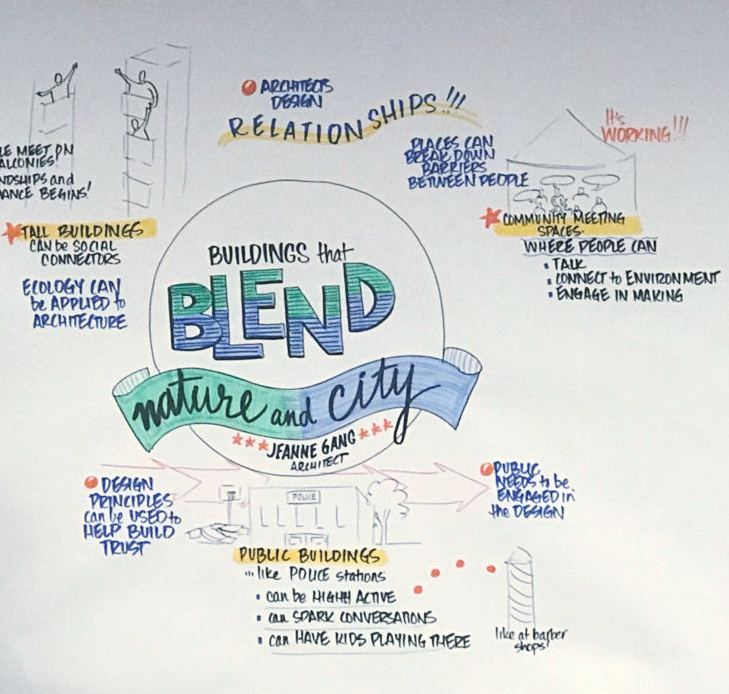 ARCHITECTS
DESIGN
RELATIONSHIPS!!!
It's
WORKING!!!
LE MEET ON
ALCONIES!
NDSHIPS and
ANCE BEGINS!
PLACES CAN
BREAK DOWN
BARRIERS
BETWEEN PEOPLE
TALL BUILDINGS
CAN be SOCIAL
CONNECTORS
ECOLOGY CAN
be APPLIED to
ARCHITECTURE
COMMUNITY MEETING
SPACES.
WHERE PEOPLE CAN
• TALK
• CONNECT to ENVIRONMENT
• ENGAGE IN MAKING
BUILDINGS that
BLEND
nature and city
JEANNE GANG
ARCHITECT
DESIGN
PRINCIPLES
can be USED to
HELP BUILD
TRUST
POLICE
PUBLIC
NEEDS to be
ENGAGED in
the DESIGN
PUBLIC BUILDINGS
...like POLICE stations
• can be HIGHLY ACTIVE
• can SPARK CONVERSATIONS
• can HAVE KIDS PLAYING THERE
like at barber
shops!